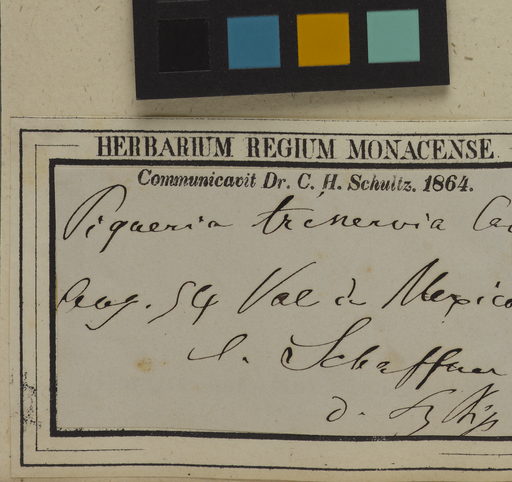 HERBARIUM REGIUM MONACENSE
Communicavit Dr. C. H. Schultz. 1864.
Piqueria trinervia Ca
Aug. 54 Val de Mexico
l. Schaffner
d.